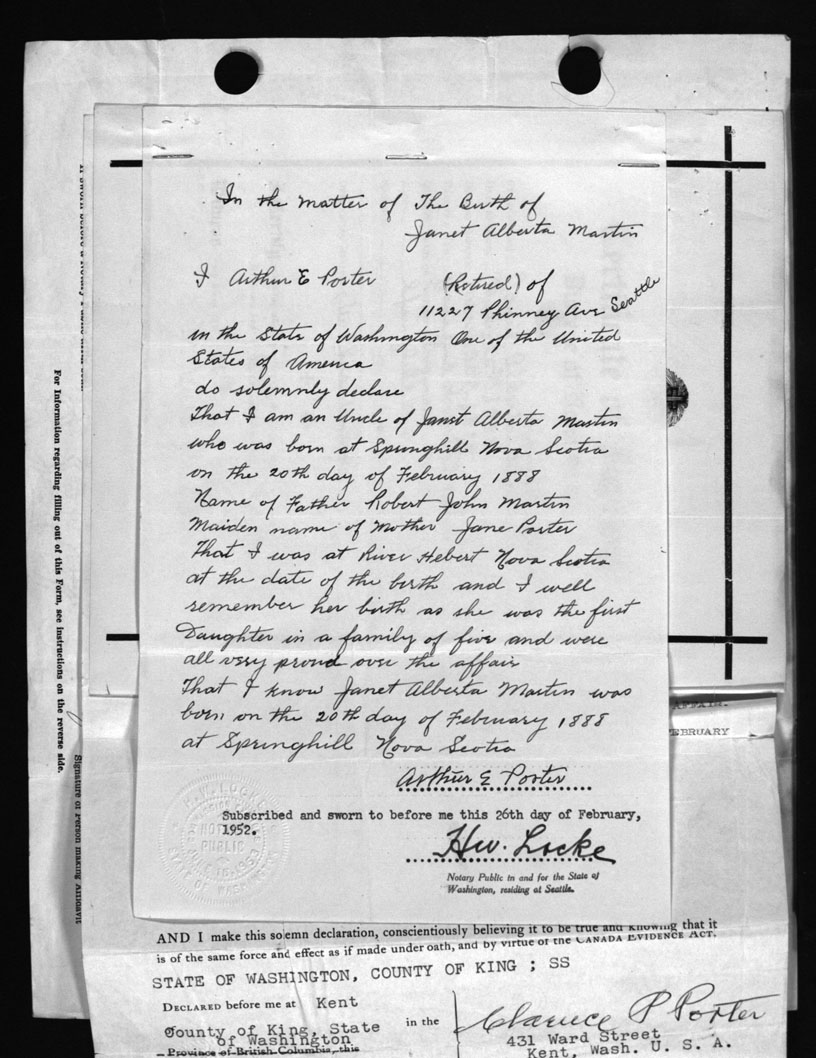 In the matter of The Birth of
Janet Alberta Martin
I Arthur E Porter (Retired) of
11227 Phinney Ave Seattle
in the State of Washington One of the United
States of America
do solemnly declare
That I am an Uncle of Janet Alberta Martin
who was born at Springhill Nova Scotia
on the 20th day of February 1888
Name of Father Robert John Martin
Maiden name of Mother Jane Porter
That I was at River Hebert Nova Scotia
at the date of the birth and I well
remember her birth as she was the first
Daughter in a family of five and were
all very proud over the affair
That I know Janet Alberta Martin was
born on the 20th day of February 1888
at Springhill Nova Scotia
Arthur E Porter
Subscribed and sworn to before me this 26th day of February,
1952.
H.W. Locke
Notary Public in and for the State of
Washington, residing at Seattle.
H.W. LOCKE
NOTARY
PUBLIC
STATE OF WASH
AFFAIR.
FEBRUARY
AND I make this solemn declaration, conscientiously believing it to be true and knowing that it
is of the same force and effect as if made under oath, and by virtue of the CANADA EVIDENCE ACT.
STATE OF WASHINGTON, COUNTY OF KING ; SS
DECLARED before me at Kent
County of King, State in the
of Washington
Province of British Columbia, this
Clarence P Porter
431 Ward Street
Kent, Wash. U. S. A.
For Information regarding filling out of this Form, see instructions on the reverse side.
Signature of person making Affidavit